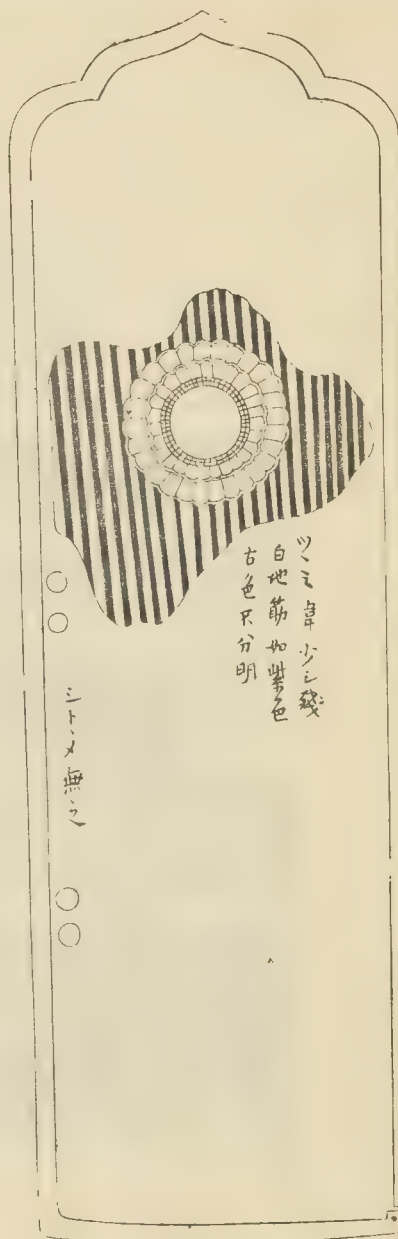 ツヽミ韋少シ残
白地筋如紫色
古色只分明
シトヽメ無之